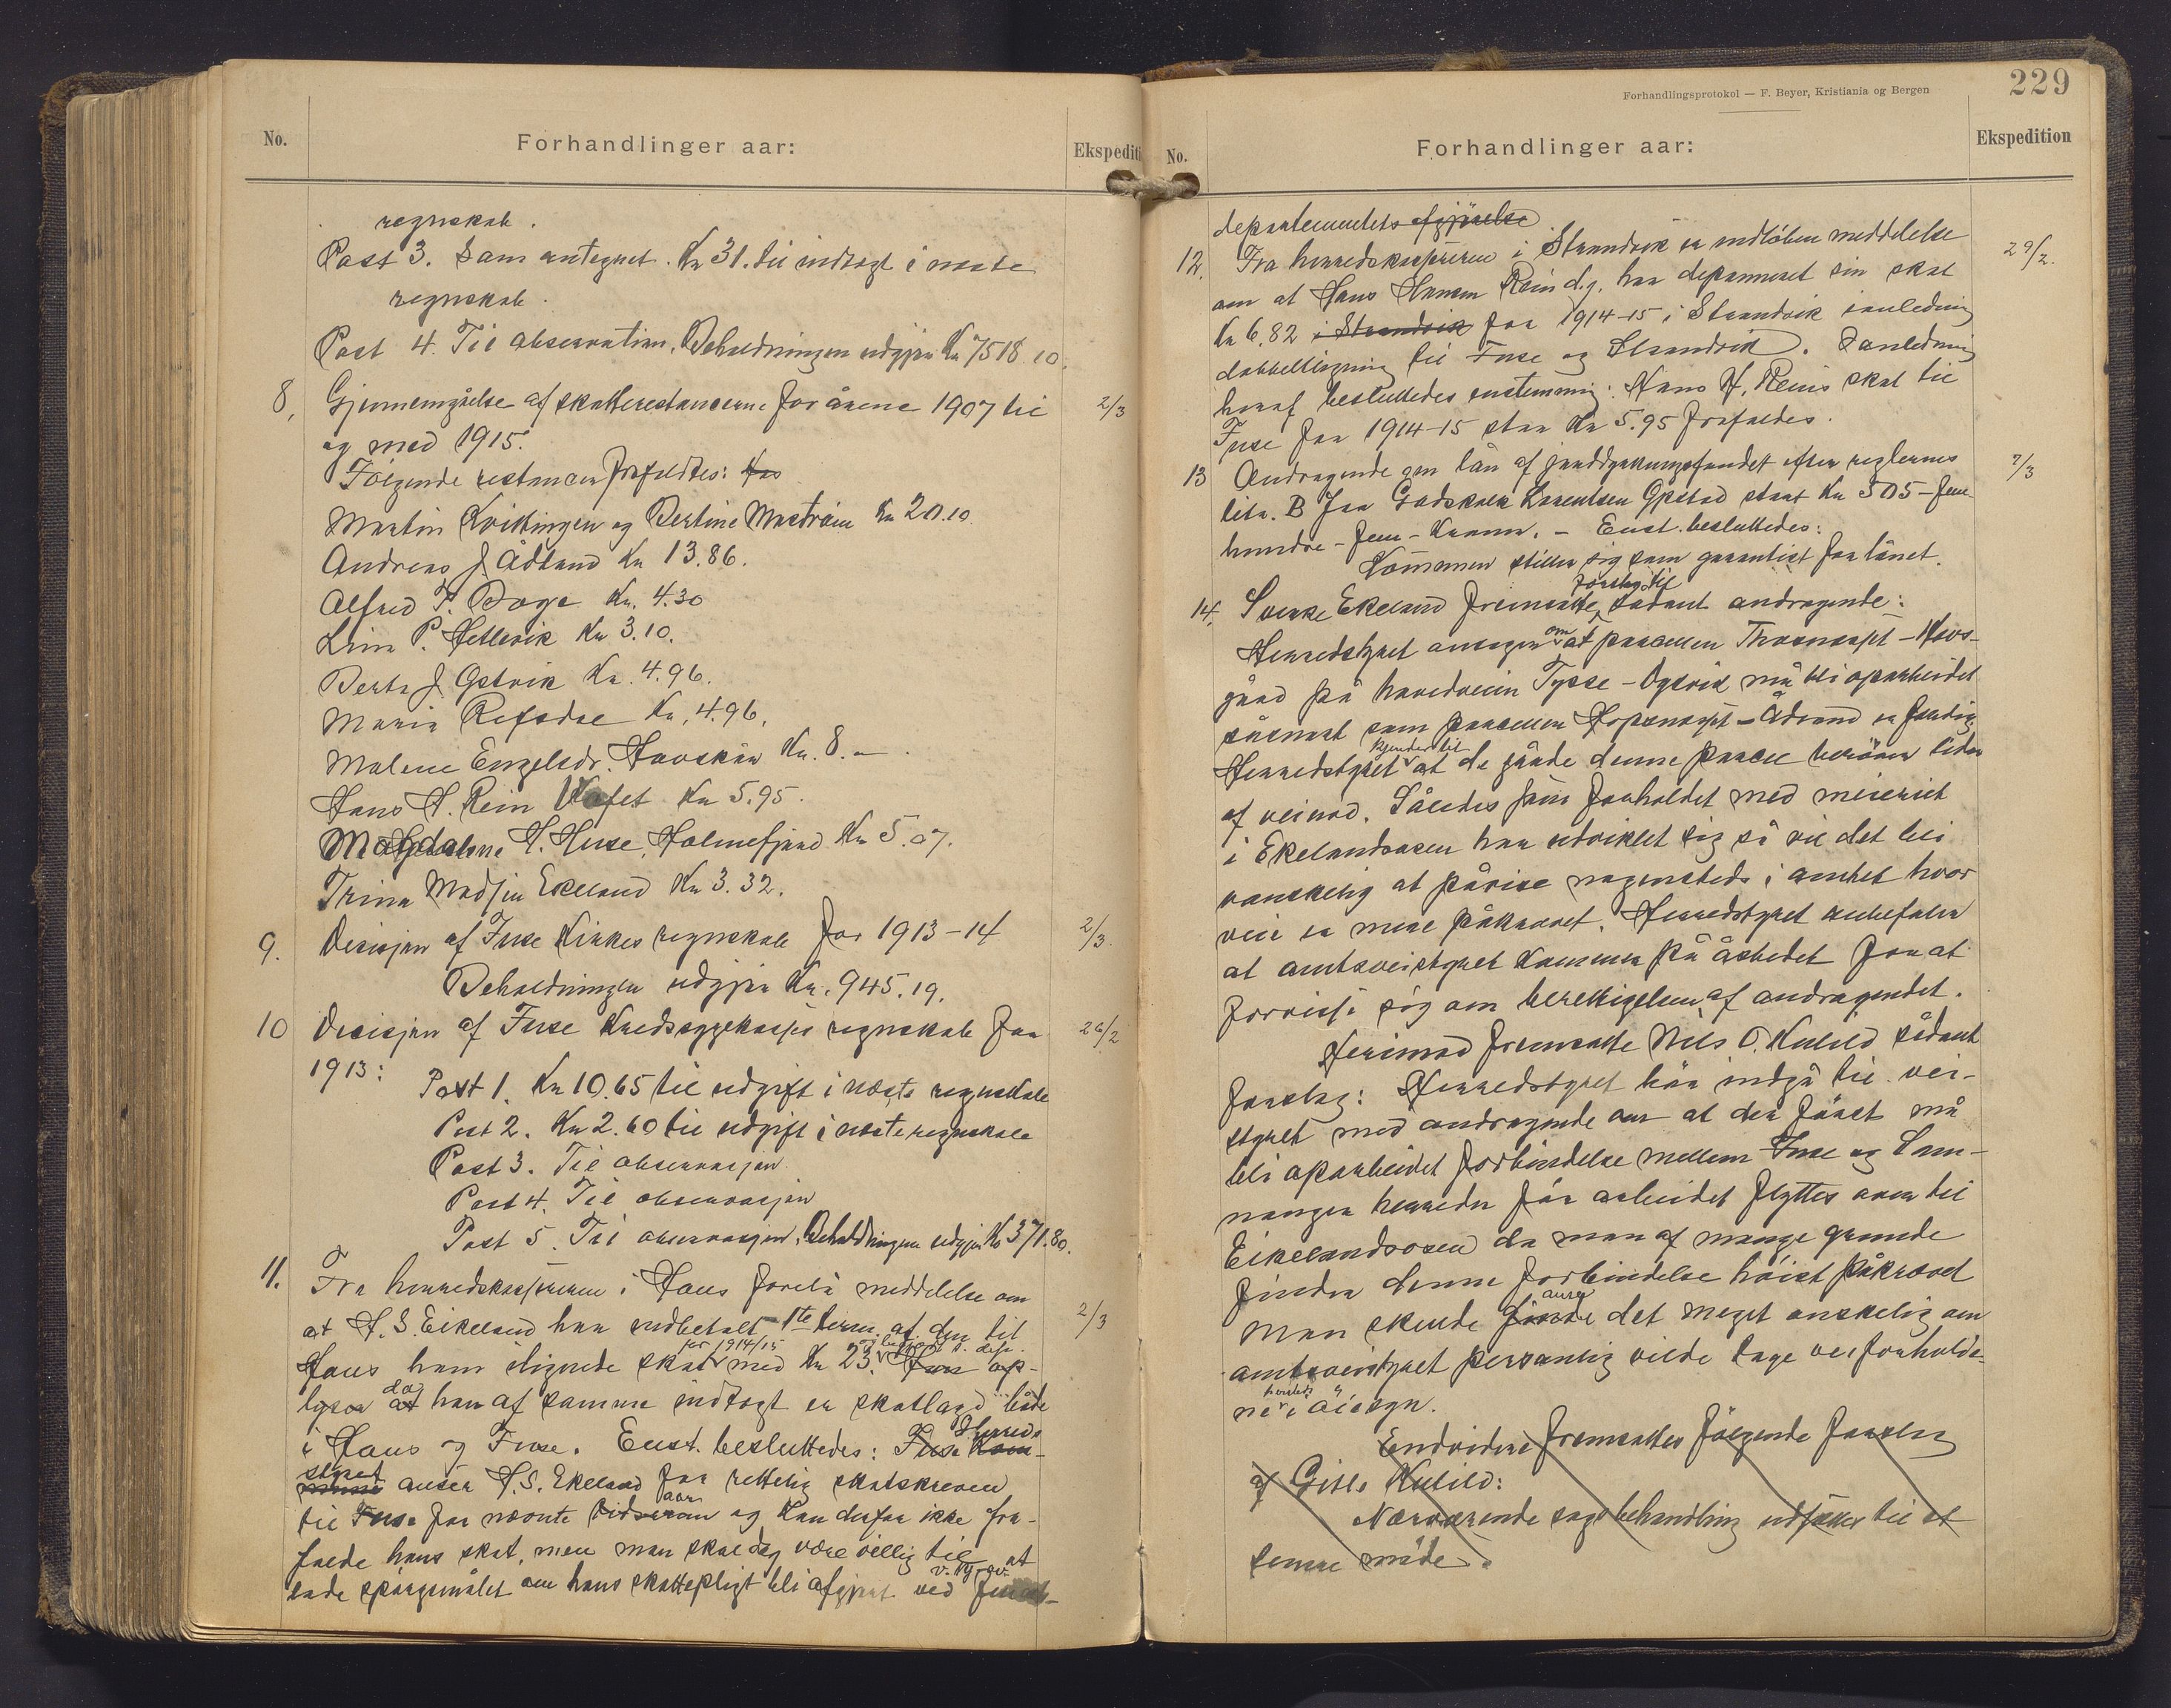 No.
Forhandlinger aar:
Ekspediti
regnskab.
Post 3. Som antegnet. Kr 31. til indtægt i næste
regnskab.
Post 4. Til observation. Beholdningen udgjør Kr 7518.10.
8. Gjennemgåelse af skatterestancerne for årene 1907 til 2/3
og med 1915.
Følgende restancer frafaldtes:
Martin Kvittingen og Bertine Mastræen Kr 20.10.
Andreas J. Ådland Kr 13.86.
Alfred T. Boge Kr. 4.30
Lina P. Hetlevik Kr 3.10.
Berta J. Gjetvik Kr. 4.96.
Maria Refsdae Kr. 4.96.
Malene Engelsdr. Havskår Kr. 8.–
Hans H. Rein Kr 5.95.
Magdalena H. Huse, Holmefjord Kr 5.07.
Trina Madsen Ekeland Kr 3.32.
9. Decisjon af Fuse Kirkes regnskab for 1913–14 2/3.
Beholdningen udgjør Kr. 945.19.
10 Decisjon af Fuse Kredssygekasses regnskab for 26/2
1913:
Post 1. Kr 10.65 til udgift i næste regnskab
Post 2. Kr 2.60 til udgift i næste regnskab
Post 3. Til observasjon.
Post 4. Til observasjon
Post 5. Til observasjon. Beholdningen udgjør Kr 371.80.
11. Fra herredskassereren i Haus forelå meddelelse om
at H. S. Eikeland har indbetalt 1te term. af den til 2/3
for 1914/15
Haus ham ilignede skat med Kr 23. op-
da
lyser at han af samme indtægt er skatlagd både
Herreds
i Haus og Fuse. Enst. besluttedes: Fuse Kom-
styret
mune anser H. S. Ekeland for rettelig skatskreven
aar
til Fuse for nævnte tidsrom og kan derfor ikke fra-
falde hans skat, men man skal dog være villig til at
lade spørgsmålet om hans skattepligt bli afgjort ved
229
Forhandlingsprotokol — F. Beyer, Kristiania og Bergen
No.
Forhandlinger aar:
Ekspedition
departementets afgjørelse
12. Fra herredskassereren i Strandvik er indløben meddelelse 29/2.
om at Hans Hansen Rein d.y. har deponneret sin skat
Kr 6.82 i Strandvik for 1914–15 i Strandvik ianledning
dobbeltligning til Fuse og Strandvik. Ianledning
heraf besluttedes enstemmig: Hans H. Reins skat til
Fuse for 1914–15 stor Kr 5.95 frafaldes.
13 Andragende om lån af jorddyrkningsfondet efter reglernes 7/3
litr. B fra Godskalk Larentsen Gjestad stort Kr 505 – fem
hundre – fem – Kroner. – Enst. besluttedes:
Kommunen stiller sig som garantist for lånet.
forslag til
14. Sverke Ekeland fremsatte sådant andragende:
om
Herredstyret ansøger at parcellen – Havs-
gård på hovedveien Tysse – Ogsvik må bli oparbeidet
såsnart som parcellen – Ådland er færdig.
kjender til
Herredstyret at de gårde denne parcel berører lider
af veinød. Således som forholdet med meieriet
i Ekelandsosen har udviklet sig så vil det bli
vanskelig at påvise nogensteds i amtet hvor
vei er mere påkrævet. Herredstyret anbefaler
at amtsveistyret kommer på åstedet for at
forvisse sig om berettigelsen af andragendet.
Herimod fremsatte Nils O. Kulild sådant
forslag: Herredstyret bør indgå til vei-
styret med andragende om at der først må
bli oparbeidet forbindelse mellem Fuse og Sam-
nanger herreder før arbeidet flyttes over til
Eikelandsosen da man af mange grunde
finder denne forbindelse høist påkrævet
anse
Man skulde finde det meget ønskelig om
amtsveistyret personlig vilde tage veiforholde-
herteds
ne i øiesyn.
Endvidere fremsattes følgende forslag
af Gitle Kulild:
Nærværende sags behandling udsættes til et
senere møde.